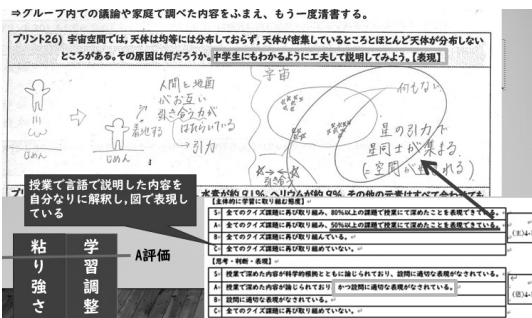 ⇒グループ内での議論や家庭で調べた内容をふまえ、もう一度清書する。
プリント26) 宇宙空間では,天体は均等には分布しておらず,天体が密集しているところとほとんど天体が分布しない
ところがある。その原因は何だろうか。中学生にもわかるように工夫して説明してみよう。【表現】
人間と地面
がお互い
引き合う力が
はたらいている
→引力
着地する
じめん
じめん
宇宙
何もない
星の引力で
星同士が集まる
(=空間が生まれる)
引き合う
水素が約91%、ヘリウムが約9%、その他の元素はすべて合わせても
授業で言語で説明した内容を
自分なりに解釈し,図で表現し
ている
粘り強さ
学習調整
A評価
【主体的に学習に取り組む態度】
S: 全てのクイズ課題に再び取り組み、80%以上の課題で授業にて深めたことを表現できている。
A: 全てのクイズ課題に再び取り組み、50%以上の課題で授業にて深めたことを表現できている。
B: 全てのクイズ課題に再び取り組んでいる。
C: 全てのクイズ課題に再び取り組めていない。
【思考・判断・表現】
S: 授業で深めた内容が科学的根拠とともに論じられており、設問に適切な表現がなされている。
A: 授業で深めた内容が論じられており、かつ設問に適切な表現がなされている。
B: 設問に適切な表現がなされている。
C: 全てのクイズ課題に再び取り組めていない。